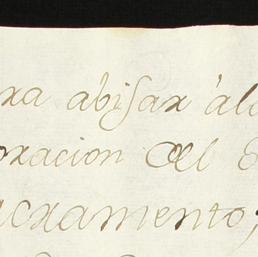 xa abisax alo
oxacion del S
acxamento,